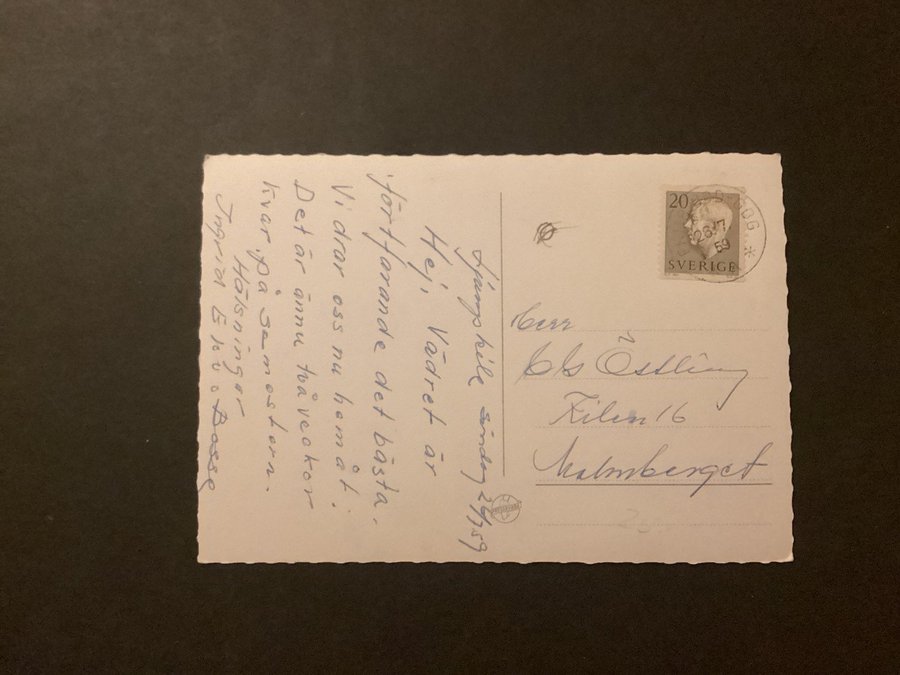 söndag 26/7 59
Hej! Vädret är
fortfarande det bästa.
Vi drar oss nu hemåt.
Det är ännu två veckor
kvar på semestern.
Hälsningar
Ingrid E h o Bosse
20
SVERIGE
26 7
59
Herr
Östling
Kilen 16
Malmberget